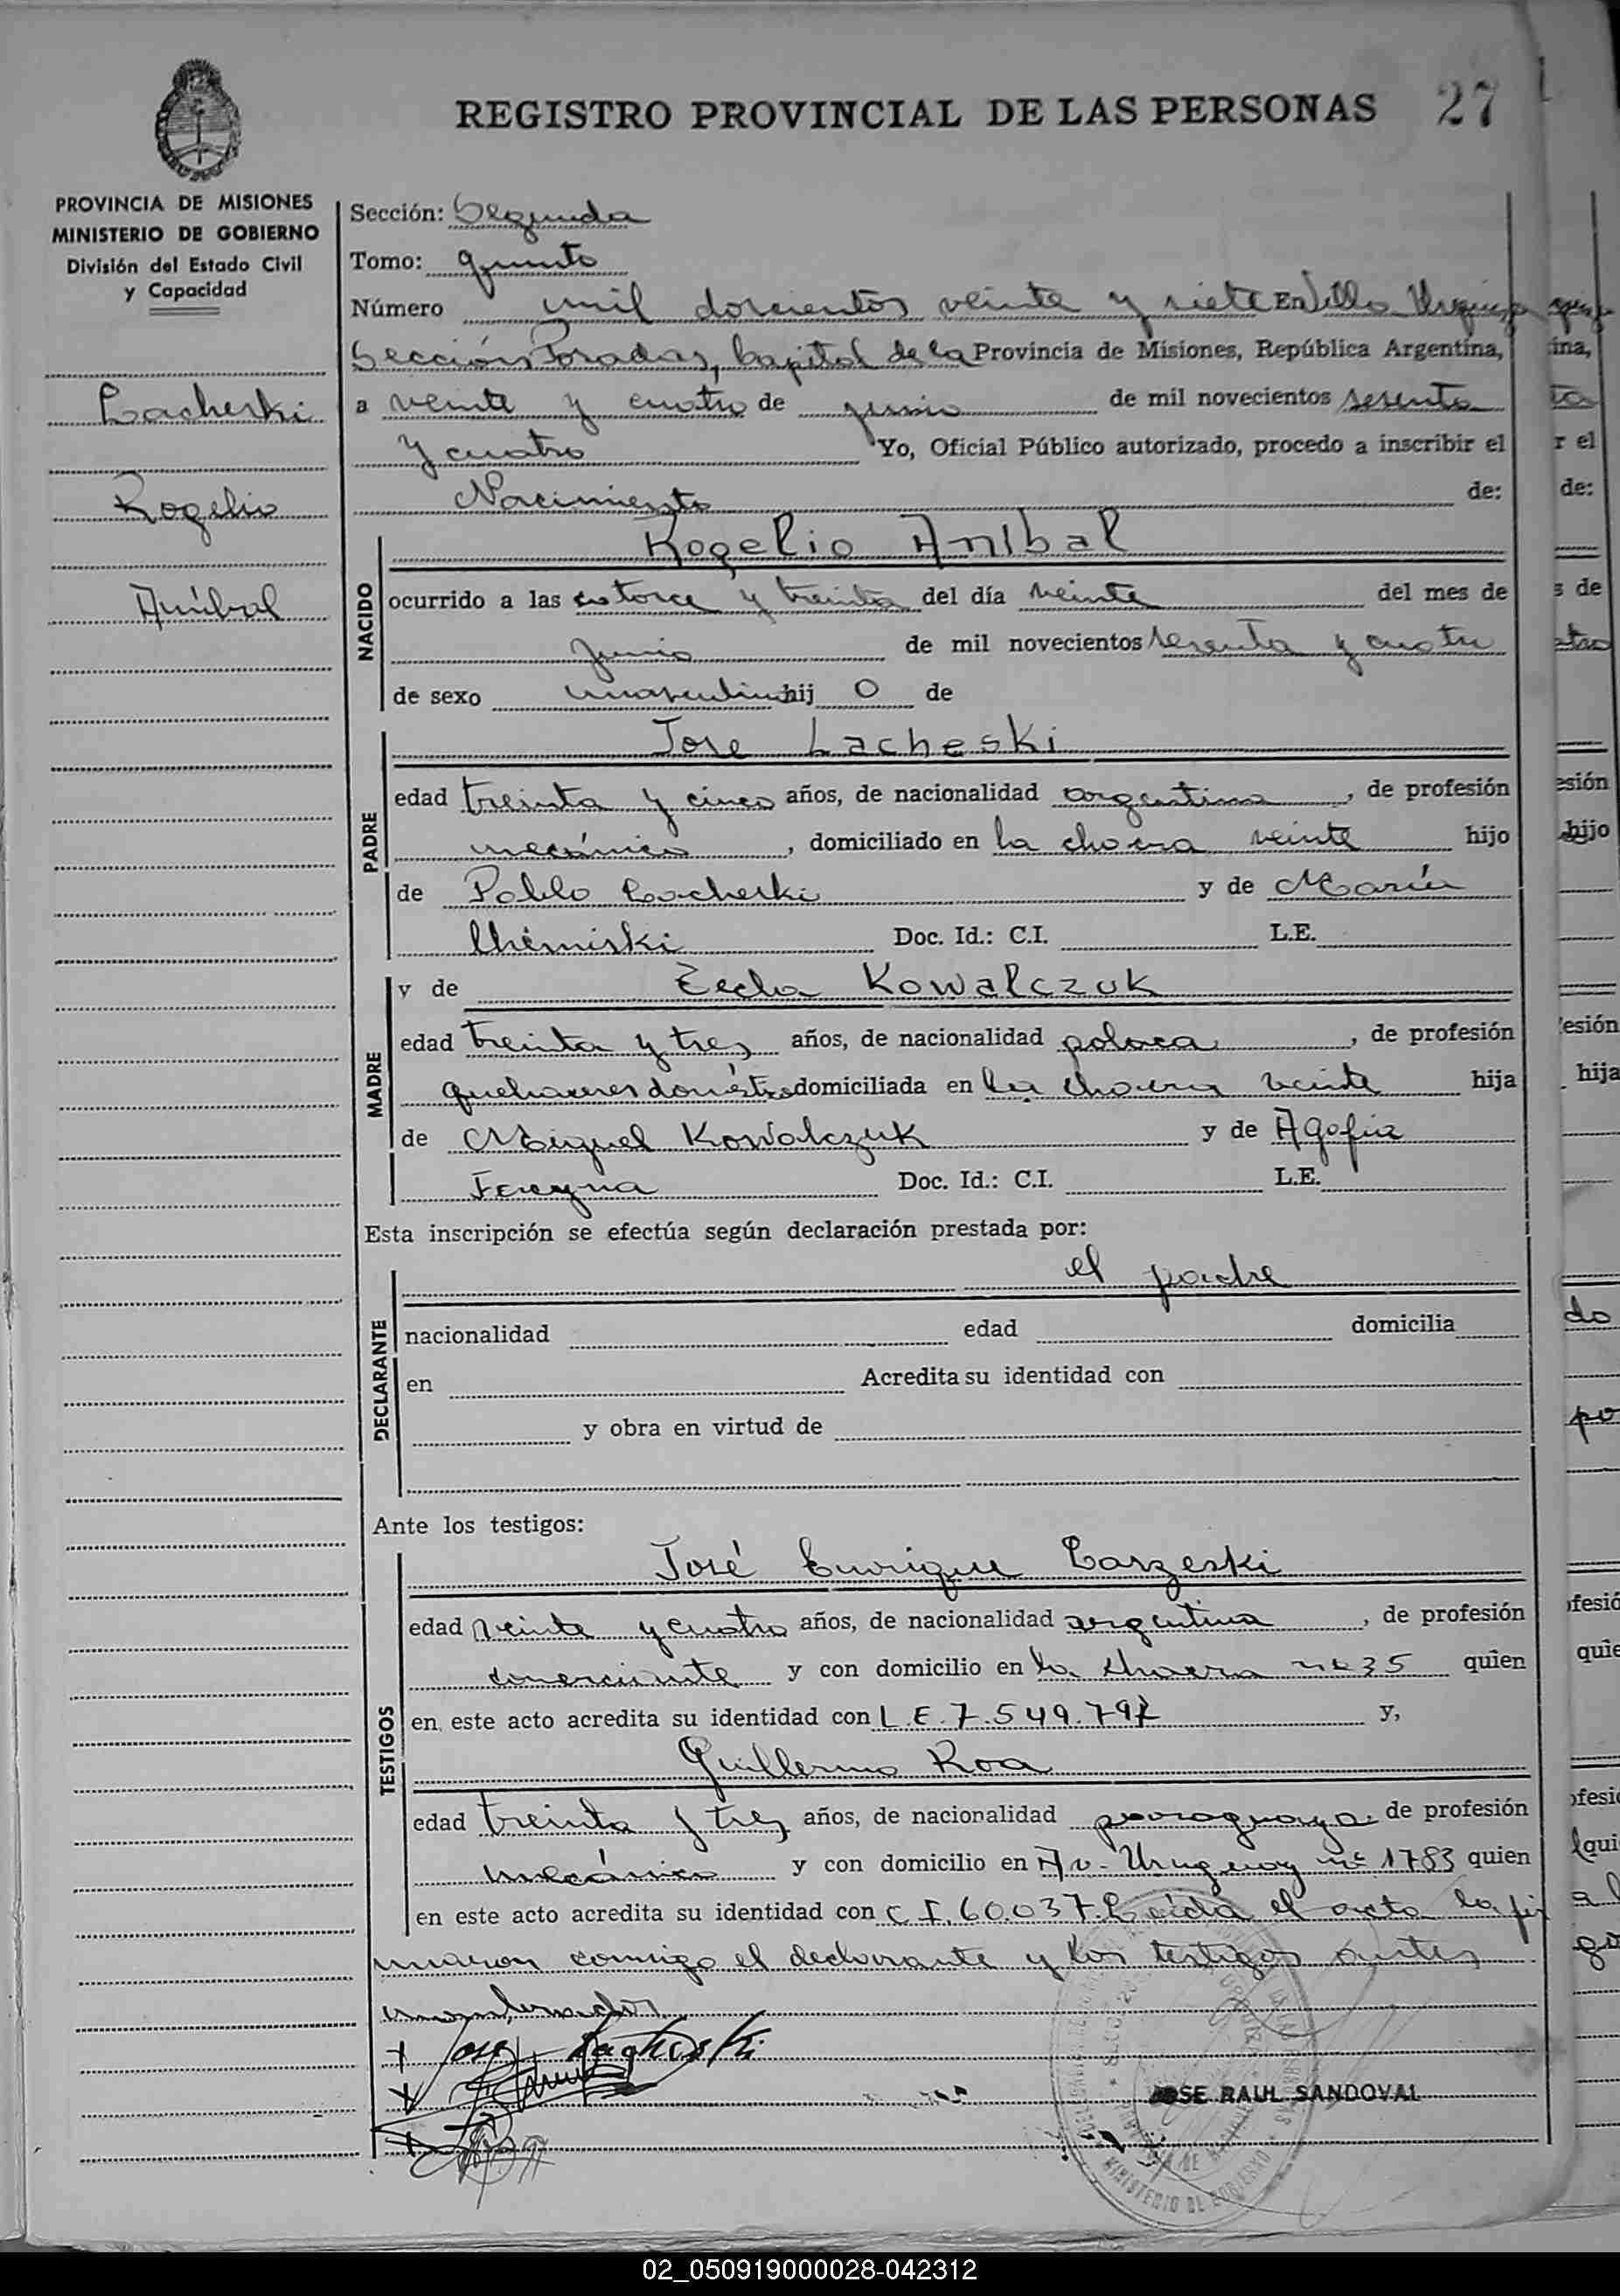 REGISTRO PROVINCIAL DE LAS PERSONAS 27
PROVINCIA DE MISIONES
MINISTERIO DE GOBIERNO
División del Estado Civil
y Capacidad
Lacheski
Rogelio
Aníbal
Sección: Segunda
Tomo: quinto
Número mil doscientos veinte y siete En Villa Urquiza
Sección Posadas, Capital de la Provincia de Misiones, República Argentina,
a veinte y cuatro de junio de mil novecientos sesenta
y cuatro Yo, Oficial Público autorizado, procedo a inscribir el
Nacimiento de:
NACIDO
Rogelio Anibal
ocurrido a las catorce y treinta del día veinte del mes de
junio de mil novecientos sesenta y cuatro
de sexo masculino hij o de
PADRE
Jose Lacheski
edad treinta y cinco años, de nacionalidad argentina, de profesión
mecánico, domiciliado en la chacra veinte hijo
de Pablo Lacheski y de María
Chemiski Doc. Id.: C.I. L.E.
MADRE
y de Zecla Kowalczuk
edad treinta y tres años, de nacionalidad polaca, de profesión
domiciliada en la chacra veinte hija
de Miguel Kowalczuk y de Agafia
Doc. Id.: C.I. L.E.
Esta inscripción se efectúa según declaración prestada por:
DECLARANTE
el padre
nacionalidad edad domicilia
en Acredita su identidad con
y obra en virtud de
Ante los testigos:
TESTIGOS
José Enrique Larzeski
edad veinte y cuatro años, de nacionalidad argentina, de profesión
comerciante y con domicilio en la chacra nº 35 quien
en este acto acredita su identidad con L.E. 7.549.797 y,
Guillermo Roa
edad treinta y tres años, de nacionalidad paraguaya de profesión
mecánico y con domicilio en Av. Uruguay nº 1783 quien
en este acto acredita su identidad con C.I. 60.037. Leída el acta la fir
maron conmigo el declarante y los testigos antes
mencionados.
JOSE RAUL SANDOVAL
MINISTERIO DE GOBIERNO
02_050919000028-042312